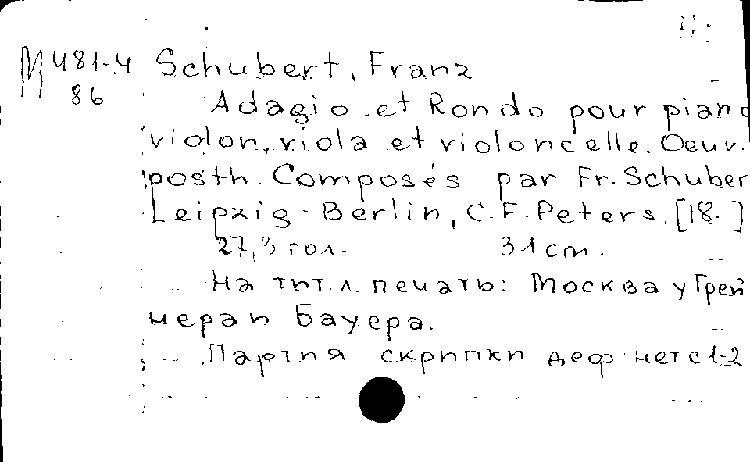 М 481-4 Schubert, Franz
86 Adagio et Rondo pour piano
violon, viola et violoncelle. Oeuv.
posth. Composés par Fr. Schuber
Leipzig-Berlin, C.F. Peters, [18. ]
27, 3 гол. 31 cm.
На тит.л. печать: Москва у Грей
нера и Бауера.
Партия скрипки деф. нет с 1-2